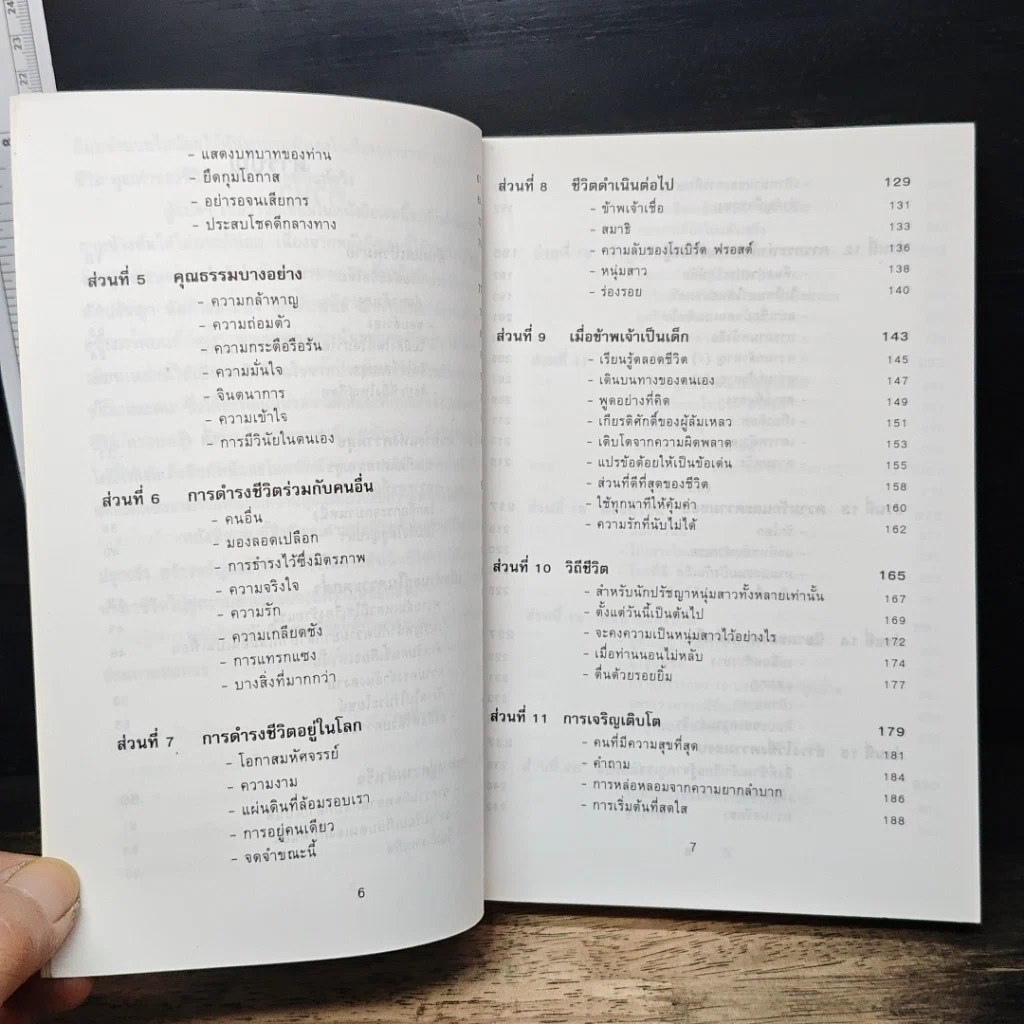 - แสดงบทบาทของท่าน
- ยึดกุมโอกาส
- อย่ารอจนเสียการ
- ประสบโชคดีกลางทาง
ส่วนที่ 5 คุณธรรมบางอย่าง
- ความกล้าหาญ
- ความถ่อมตัว
- ความกระตือรือร้น
- ความมั่นใจ
- จินตนาการ
- ความเข้าใจ
- การมีวินัยในตนเอง
ส่วนที่ 6 การดำรงชีวิตร่วมกับคนอื่น
- คนอื่น
- มองลอดเปลือก
- การธำรงไว้ซึ่งมิตรภาพ
- ความจริงใจ
- ความรัก
- ความเกลียดชัง
- การแทรกแซง
- บางสิ่งที่มากกว่า
ส่วนที่ 7 การดำรงชีวิตอยู่ในโลก
- โอกาสมหัศจรรย์
- ความงาม
- แผ่นดินที่ล้อมรอบเรา
- การอยู่คนเดียว
- จดจำขณะนี้
6
ส่วนที่ 8 ชีวิตดำเนินต่อไป 129
- ข้าพเจ้าเชื่อ 131
- สมาธิ 133
- ความลับของโรเบิร์ต ฟรอสต์ 136
- หนุ่มสาว 138
- ร่องรอย 140
ส่วนที่ 9 เมื่อข้าพเจ้าเป็นเด็ก 143
- เรียนรู้ตลอดชีวิต 145
- เดินบนทางของตนเอง 147
- พูดอย่างที่คิด 149
- เกียรติศักดิ์ของผู้ล้มเหลว 151
- เติบโตจากความผิดพลาด 153
- แปรข้อด้อยให้เป็นข้อเด่น 155
- ส่วนที่ดีที่สุดของชีวิต 158
- ใช้ทุกนาทีให้คุ้มค่า 160
- ความรักที่นับไม่ได้ 162
ส่วนที่ 10 วิถีชีวิต 165
- สำหรับนักปรัชญาหนุ่มสาวทั้งหลายเท่านั้น 167
- ตั้งแต่วันนี้เป็นต้นไป 169
- จะคงความเป็นหนุ่มสาวไว้อย่างไร 172
- เมื่อท่านนอนไม่หลับ 174
- ตื่นด้วยรอยยิ้ม 177
ส่วนที่ 11 การเจริญเติบโต 179
- คนที่มีความสุขที่สุด 181
- คำถาม 184
- การหล่อหลอมจากความยากลำบาก 186
- การเริ่มต้นที่สดใส 188
7